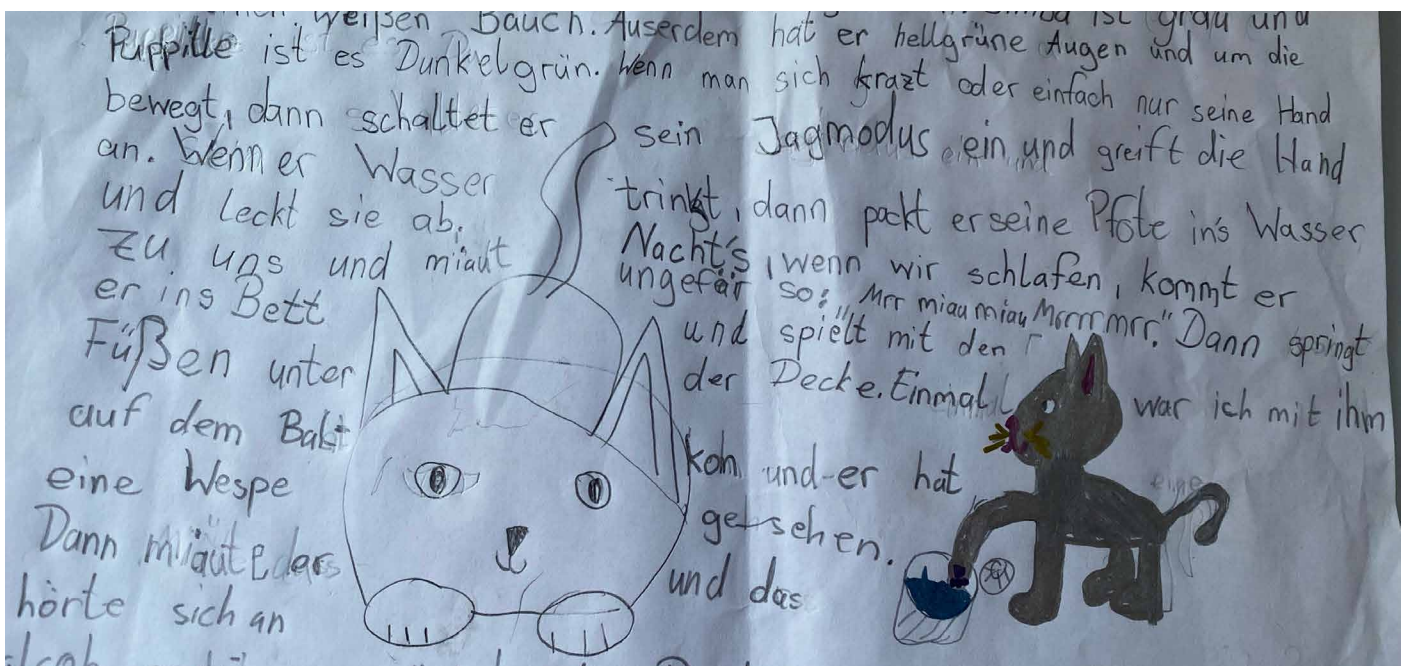 ist grau und
weißen Bauch. Auserdem hat er hellgrüne Augen und um die
Puppille ist es Dunkelgrün. Wenn man sich krazt oder einfach nur seine Hand
bewegt, dann schaltet er sein Jagmodus ein und greift die Hand
an. Wenn er Wasser trinkt, dann packt er seine Pfote in's Wasser
und leckt sie ab. Nacht's, wenn wir schlafen, kommt er
zu uns und miaut ungefär so: „Mrr miau miau Mrrrrmrr." Dann springt
er ins Bett und spielt mit den
Füßen unter der Decke. Einmal war ich mit ihm
auf dem Balkoh und er hat
eine Wespe gesehen.
Dann miaute und das
hörte sich an